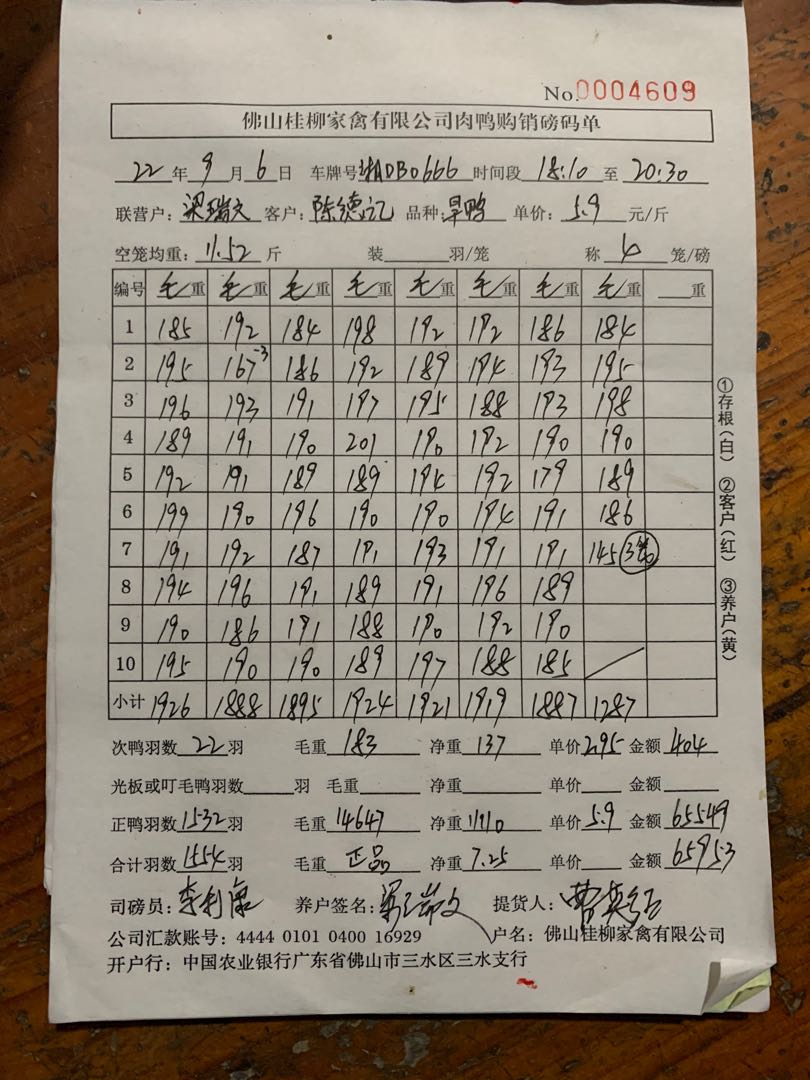 No.0004609
佛山桂柳家禽有限公司肉鸭购销磅码单
22年9月6日 车牌号湘ADB0666 时间段18:10至20:30
联营户:梁瑞文 客户:陈德记 品种:旱鸭 单价:5.9元/斤
空笼均重:11.52斤 装 羽/笼 称4笼/磅
编号 毛重 毛重 毛重 毛重 毛重 毛重 毛重 毛重 重
1 185 192 184 198 192 192 186 184
2 195 167-3 186 192 189 194 193 195
3 196 193 191 197 195 188 193 198
4 189 191 190 201 190 192 190 190
5 192 191 189 189 194 192 179 189
6 199 190 196 190 190 194 191 186
7 191 192 187 191 193 191 191 145 3笼
8 194 196 191 189 191 196 189
9 190 186 191 188 190 192 190
10 195 190 190 189 197 188 185
小计 1926 1888 1895 1924 1921 1919 1887 1287
次鸭羽数22羽 毛重183 净重137 单价2.95 金额404
光板或叮毛鸭羽数 羽 毛重 净重 单价 金额
正鸭羽数1532羽 毛重14647 净重11110 单价5.9 金额65549
合计羽数1554羽 毛重正品 净重7.25 单价 金额65953
司磅员:李利 养户签名:梁瑞文 提货人:
公司汇款账号:4444 0101 0400 16929 户名:佛山桂柳家禽有限公司
开户行:中国农业银行广东省佛山市三水区三水支行
①存根(白) ②客户(红) ③养户(黄)